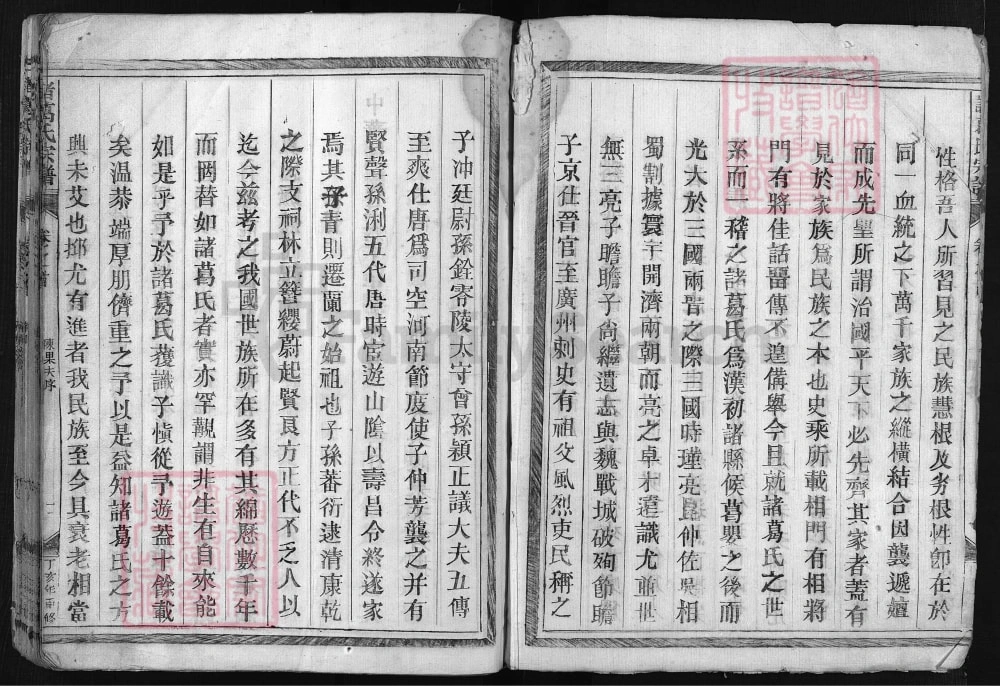 性格吾人所習見之民族慧根及劣根性卽在於
同一血統之下萬千家族之縱橫結合因襲遞嬗
而成先聖所謂治國平天下必先齊其家者蓋有
見於家族爲民族之本也史乘所載相門有相將
門有將佳話罶傳不遑備舉今且就諸葛氏之世
系而一稽之諸葛氏爲漢初諸縣侯葛嬰之後而
光大於三國兩晋之際三國時瑾亮昆仲佐吳相
蜀割據寰宇開濟兩朝而亮之卓才遠識尤並世
無三亮子瞻瞻子尙繼遺志與魏戰城破殉節瞻
子京仕晉官至廣州刺史有祖父風烈吏民稱之
子冲廷尉孫銓零陵太守曾孫穎正議大夫五傳
至爽仕唐爲司空河南節度使子仲芳襲之并有
賢聲孫浰五代唐時宦遊山陰以壽昌令終遂家
焉其子青則遷蘭之始祖也子孫蕃衍逮清康乾
之際支祠林立簪纓蔚起賢良方正代不乏人以
迄今兹考之我國世族所在多有其綿歷數千年
而罔替如諸葛氏者實亦罕覯謂非生有自來能
如是乎予於諸葛氏獲識子愼從予遊蓋十餘載
矣温恭端厚朋儕重之予以是益知諸葛氏之方
興未艾也抑尤有進者我民族至今具衰老相當
諸葛氏宗譜
卷之首
陳果夫序
丁亥年重修